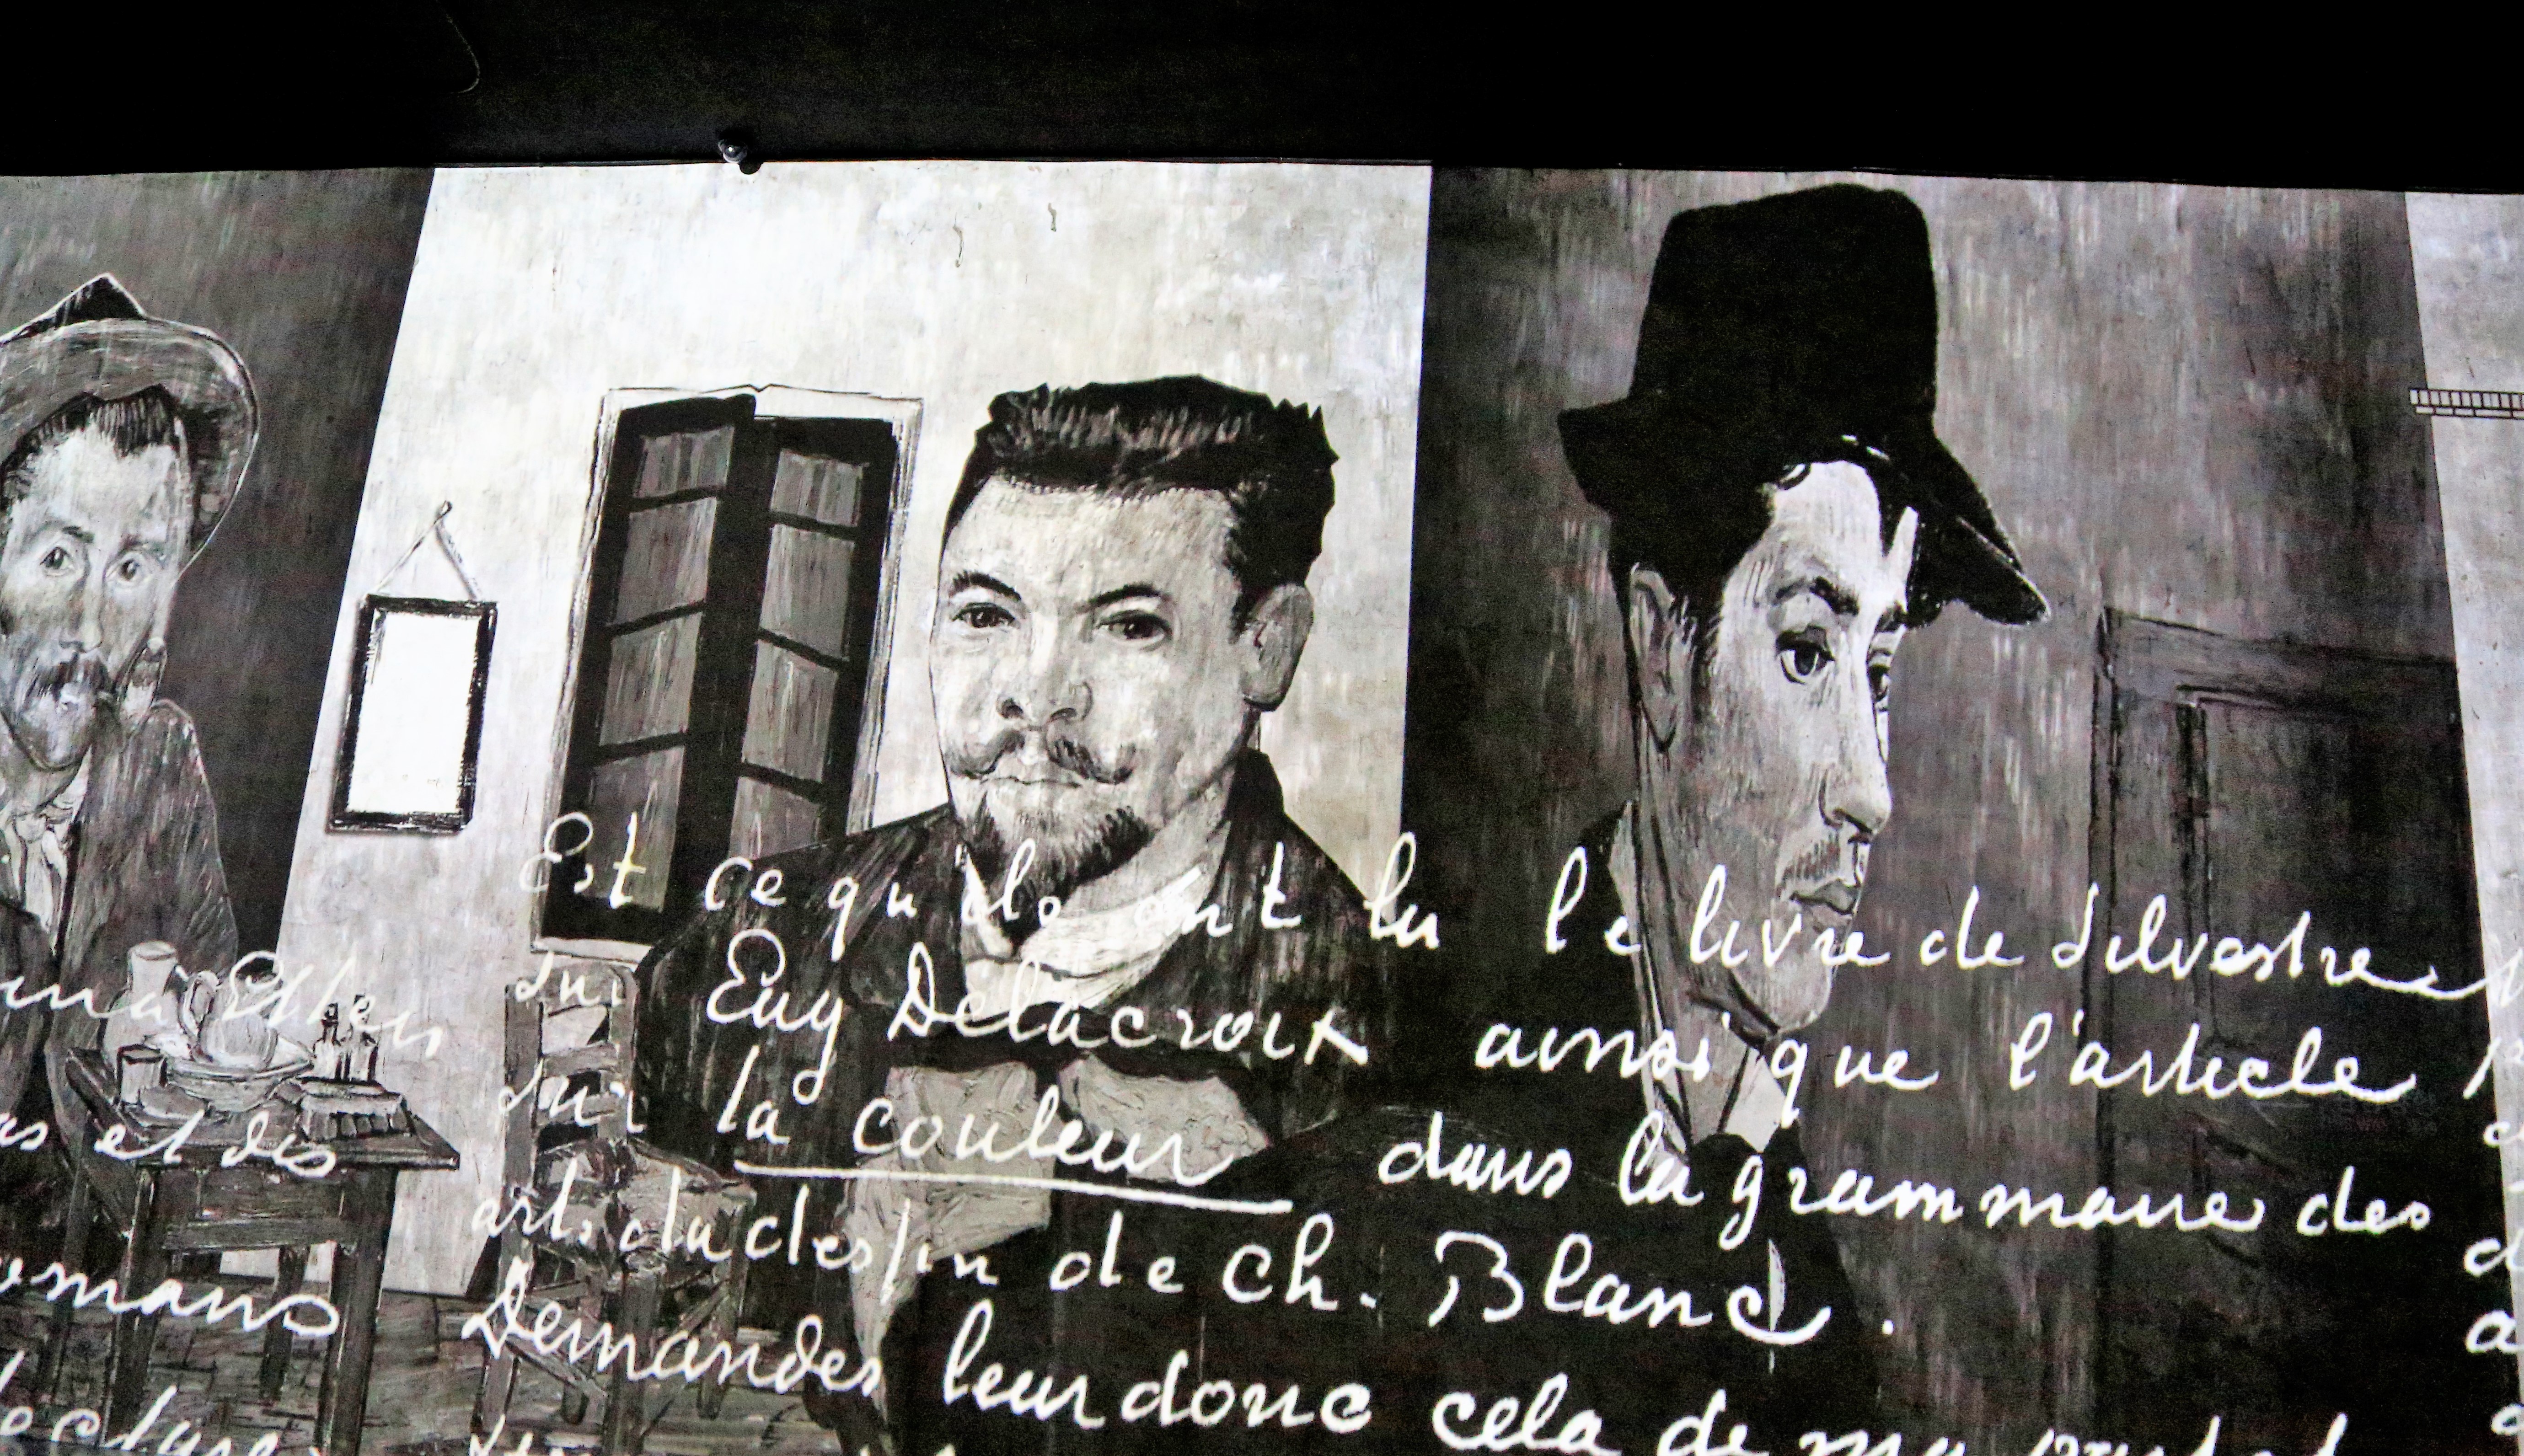 Est ce qu'ils ont lu le livre de Silvestre
sur Eug Delacroix ainsi que l'article
sur la couleur dans la grammaire des
arts du dessin de Ch. Blanc.
Demandes leur donc cela de ma part et
as et des
omans